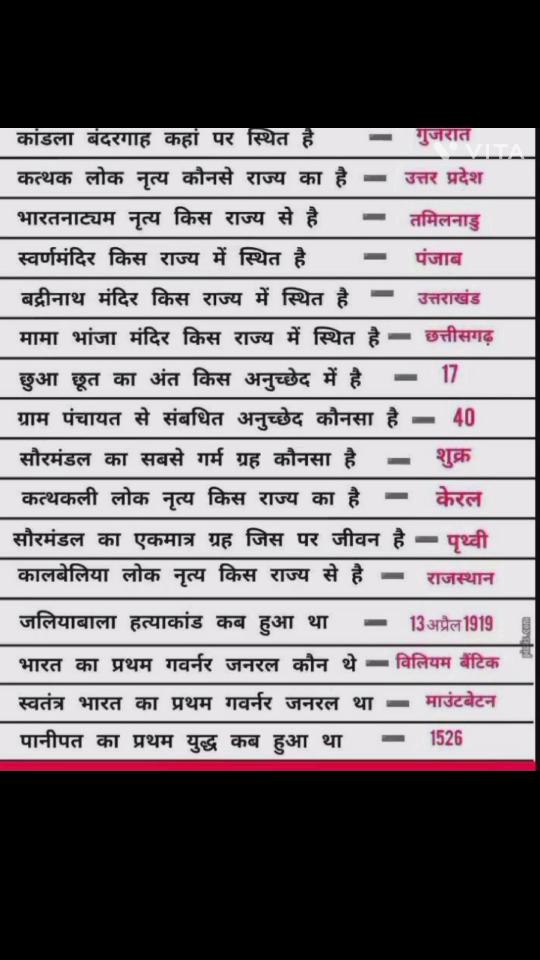 कांडला बंदरगाह कहां पर स्थित है — गुजरात
VITA
कत्थक लोक नृत्य कौनसे राज्य का है — उत्तर प्रदेश
भारतनाट्यम नृत्य किस राज्य से है — तमिलनाडु
स्वर्णमंदिर किस राज्य में स्थित है — पंजाब
बद्रीनाथ मंदिर किस राज्य में स्थित है — उत्तराखंड
मामा भांजा मंदिर किस राज्य में स्थित है — छत्तीसगढ़
छुआ छूत का अंत किस अनुच्छेद में है — 17
ग्राम पंचायत से संबधित अनुच्छेद कौनसा है — 40
सौरमंडल का सबसे गर्म ग्रह कौनसा है — शुक्र
कत्थकली लोक नृत्य किस राज्य का है — केरल
सौरमंडल का एकमात्र ग्रह जिस पर जीवन है — पृथ्वी
कालबेलिया लोक नृत्य किस राज्य से है — राजस्थान
जलियाबाला हत्याकांड कब हुआ था — 13 अप्रैल 1919
भारत का प्रथम गवर्नर जनरल कौन थे — विलियम बैंटिक
स्वतंत्र भारत का प्रथम गवर्नर जनरल था — माउंटबेटन
पानीपत का प्रथम युद्ध कब हुआ था — 1526